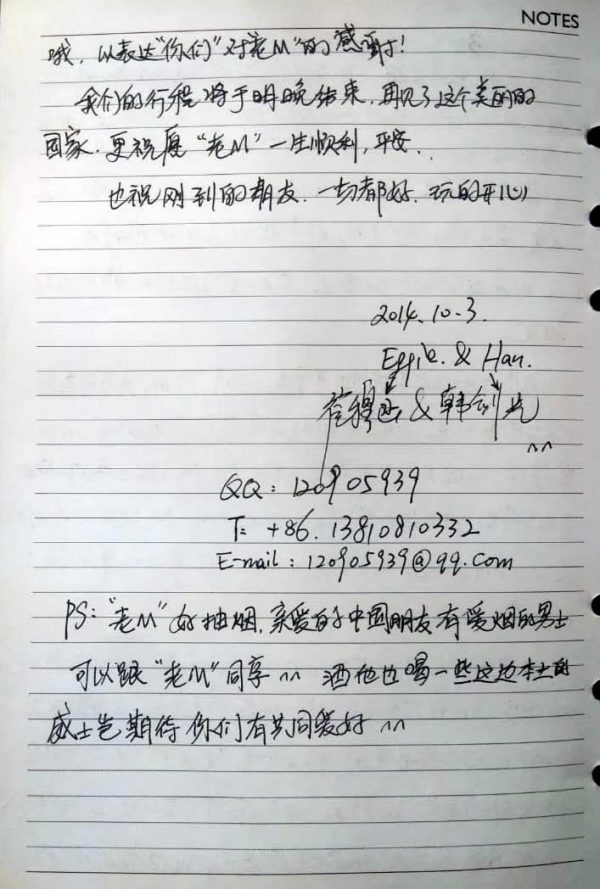 NOTES
哦，以表达“你们”对“老M”的感谢！
我们的行程将于明晚结束，再见了这个美丽的
国家．更祝愿“老M”一生顺利，平安．．
也祝刚到的朋友．一切都好．玩的开心
2014.10.3.
Effie. & Han.
& 韩剑
^^
QQ：120905939
T: +86.13810810332
E-mail：120905939@qq.com
PS：“老M”好抽烟，亲爱的中国朋友有爱烟的男士
可以跟“老M”同享 ^^ 酒他也喝一些这边本土的
威士忌期待你们有共同爱好 ^^